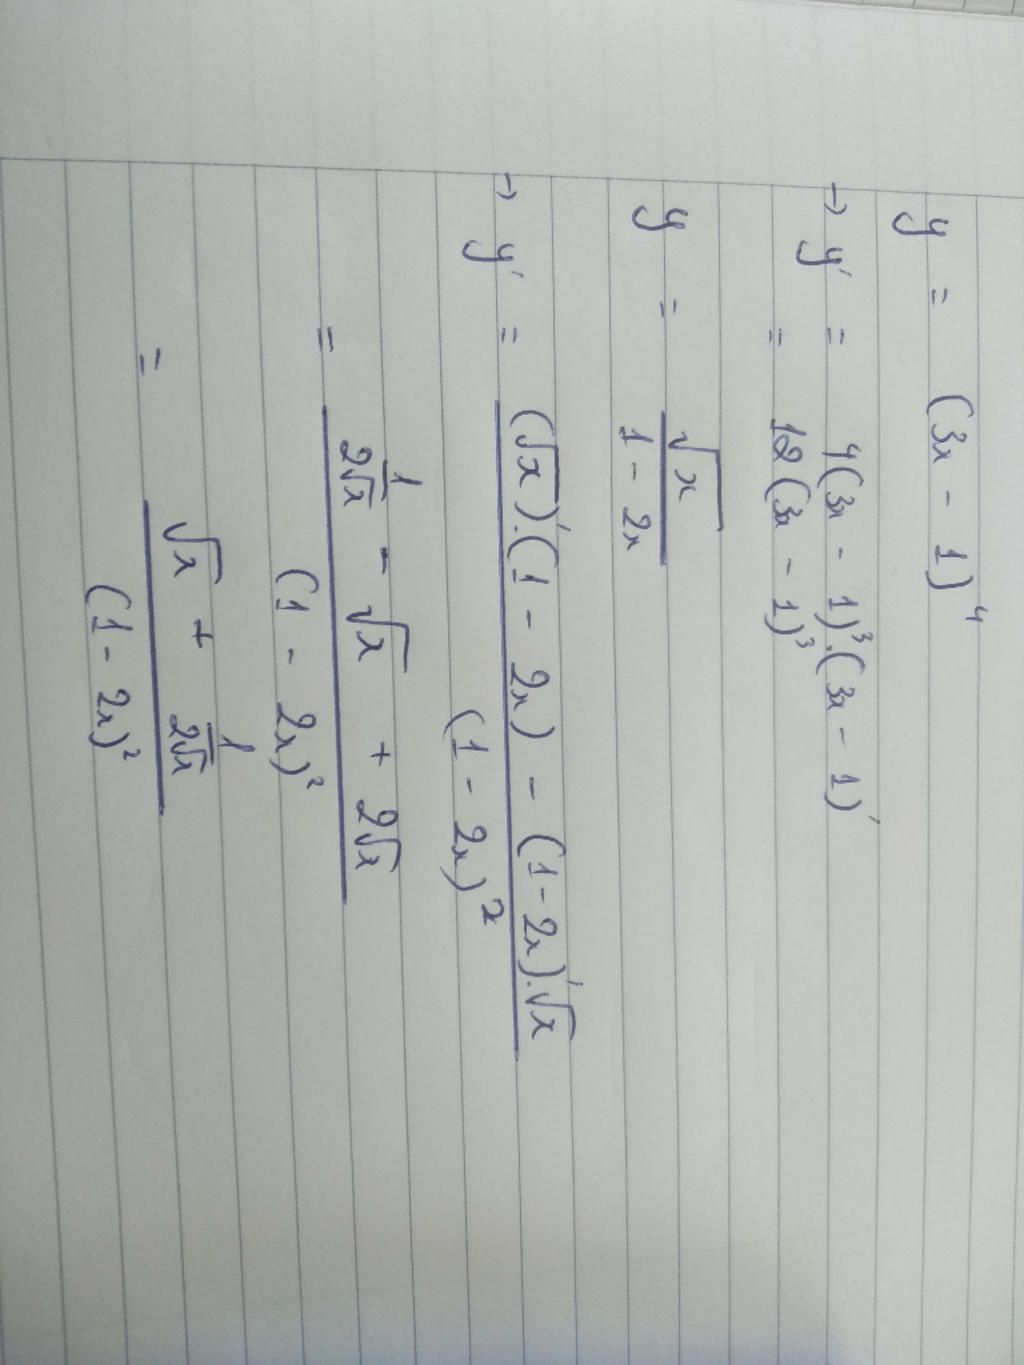 y = (3x - 1)⁴
→ y' = 4(3x - 1)³.(3x - 1)'
= 12(3x - 1)³
y = √x / (1 - 2x)
→ y' = ((√x)'.(1 - 2x) - (1 - 2x)'.√x) / (1 - 2x)²
= (1/(2√x) - √x + 2√x) / (1 - 2x)²
= (√x + 1/(2√x)) / (1 - 2x)²